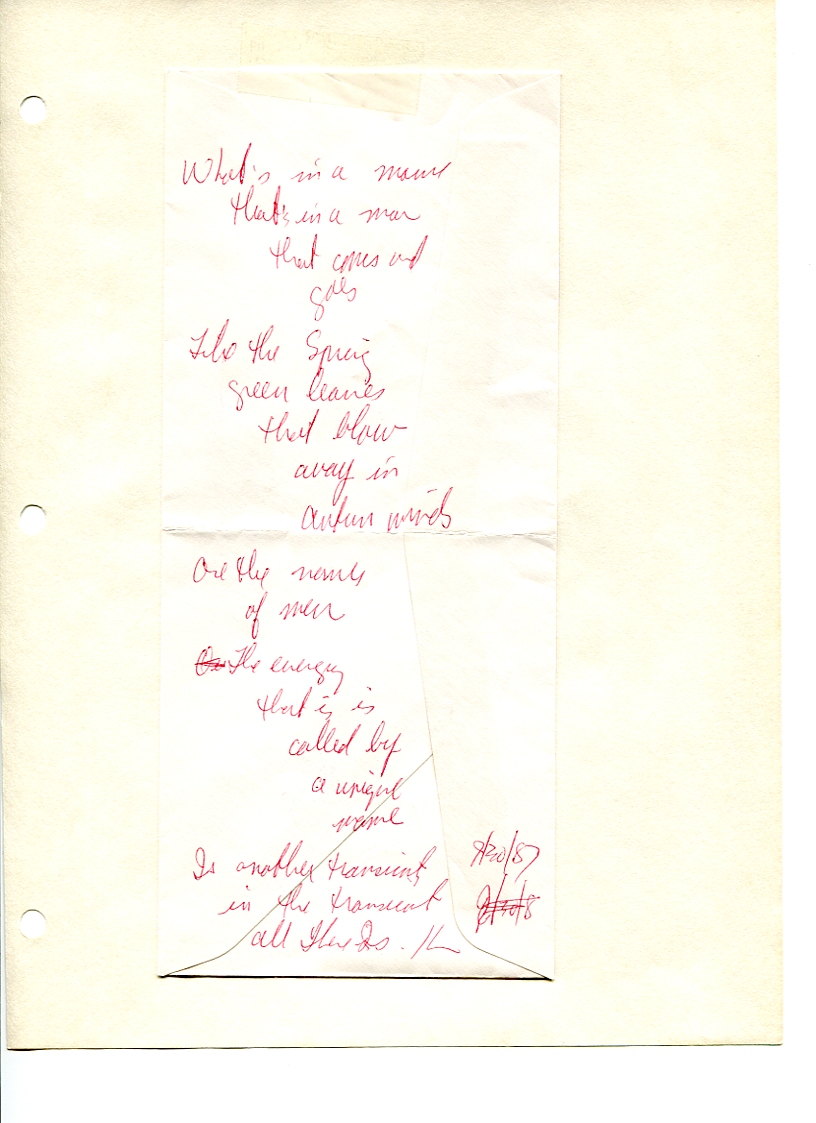 What's in a name
that's in a man
that comes and
goes
Like the Spring
green leaves
that blow
away in
Autum winds
Are the names
of men
The energy
that is is
called by
a unique
name
Is another transient
in the transient
all There Is.
9/30/87